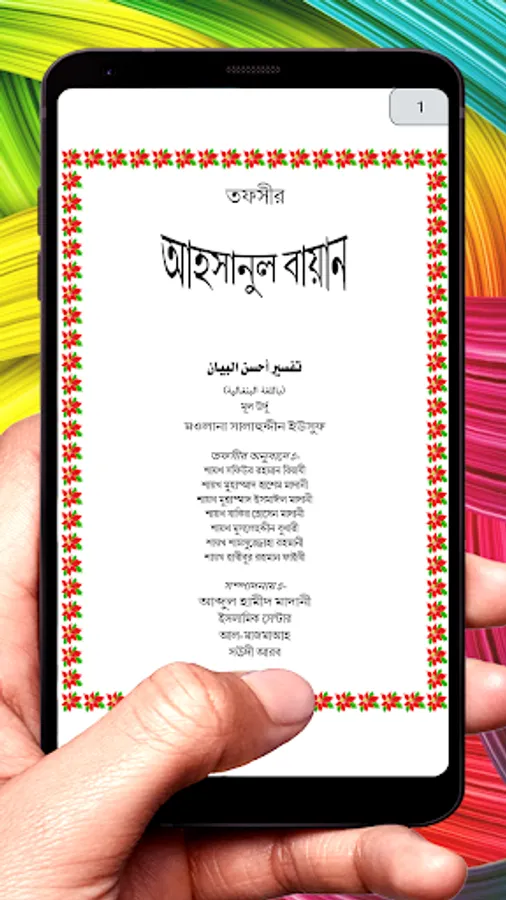 1
তফসীর
আহসানুল বায়ান
تفسير أحسن البيان
(باللغة البنغالية)
মূল উর্দু
মওলানা সালাহুদ্দীন ইউসুফ
তফসীর অনুবাদেঃ-
শায়খ সফিউর রহমান রিয়াযী
শায়খ মুহাম্মাদ হাশেম মাদানী
শায়খ মুহাম্মাদ ইসমাঈল মাদানী
শায়খ যাকির হোসেন মাদানী
শায়খ মুসলেহুদ্দীন বুখারী
শায়খ শামসুজ্জোহা রহমানী
শায়খ হাবীবুর রহমান ফাইযী
সম্পাদনায়ঃ-
আব্দুল হামীদ মাদানী
ইসলামিক সেন্টার
আল-মাজমাআহ
সউদী আরব